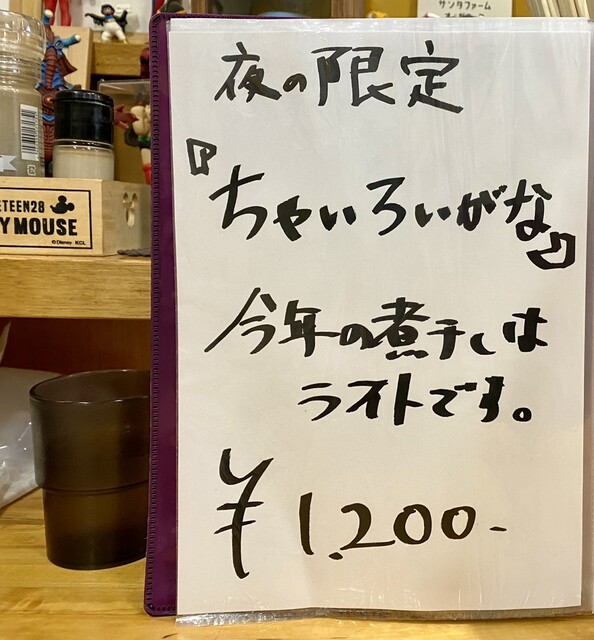 サンタファーム
夜の限定
『ちゃいろいがな』
今年の煮干しは
ライトです。
¥1,200-
ETEEN28
Y MOUSE
©Disney KCL